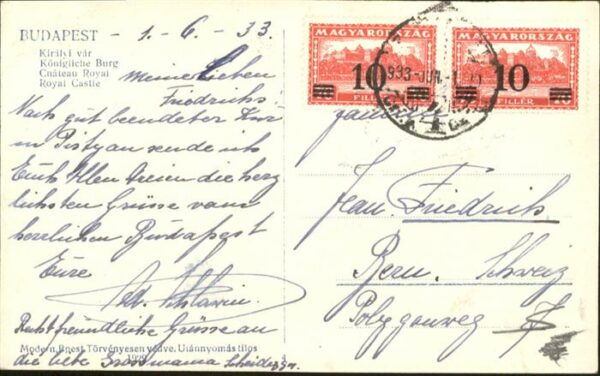 BUDAPEST - 1. - 6 - 33.
Királyi vár
Königliche Burg
Château Royal
Royal Castle
Meine Lieben
Friedrichs.
Nach gut beendeter Kur
in Pistyan sende ich
Euch Allen dreien die herz
lichsten Grüsse vom
herrlichen Budapest
Eure
Recht freundliche Grüsse an
die liebe Grossmama
Modern Bnest. Törvényesen védve. Utánnyomás tilos
MAGYARORSZÁG
10
FILLÉR
MAGYARORSZÁG
10
FILLÉR
933 JUN.
Jean Friedrich
Bern. Schweiz
Polygonweg